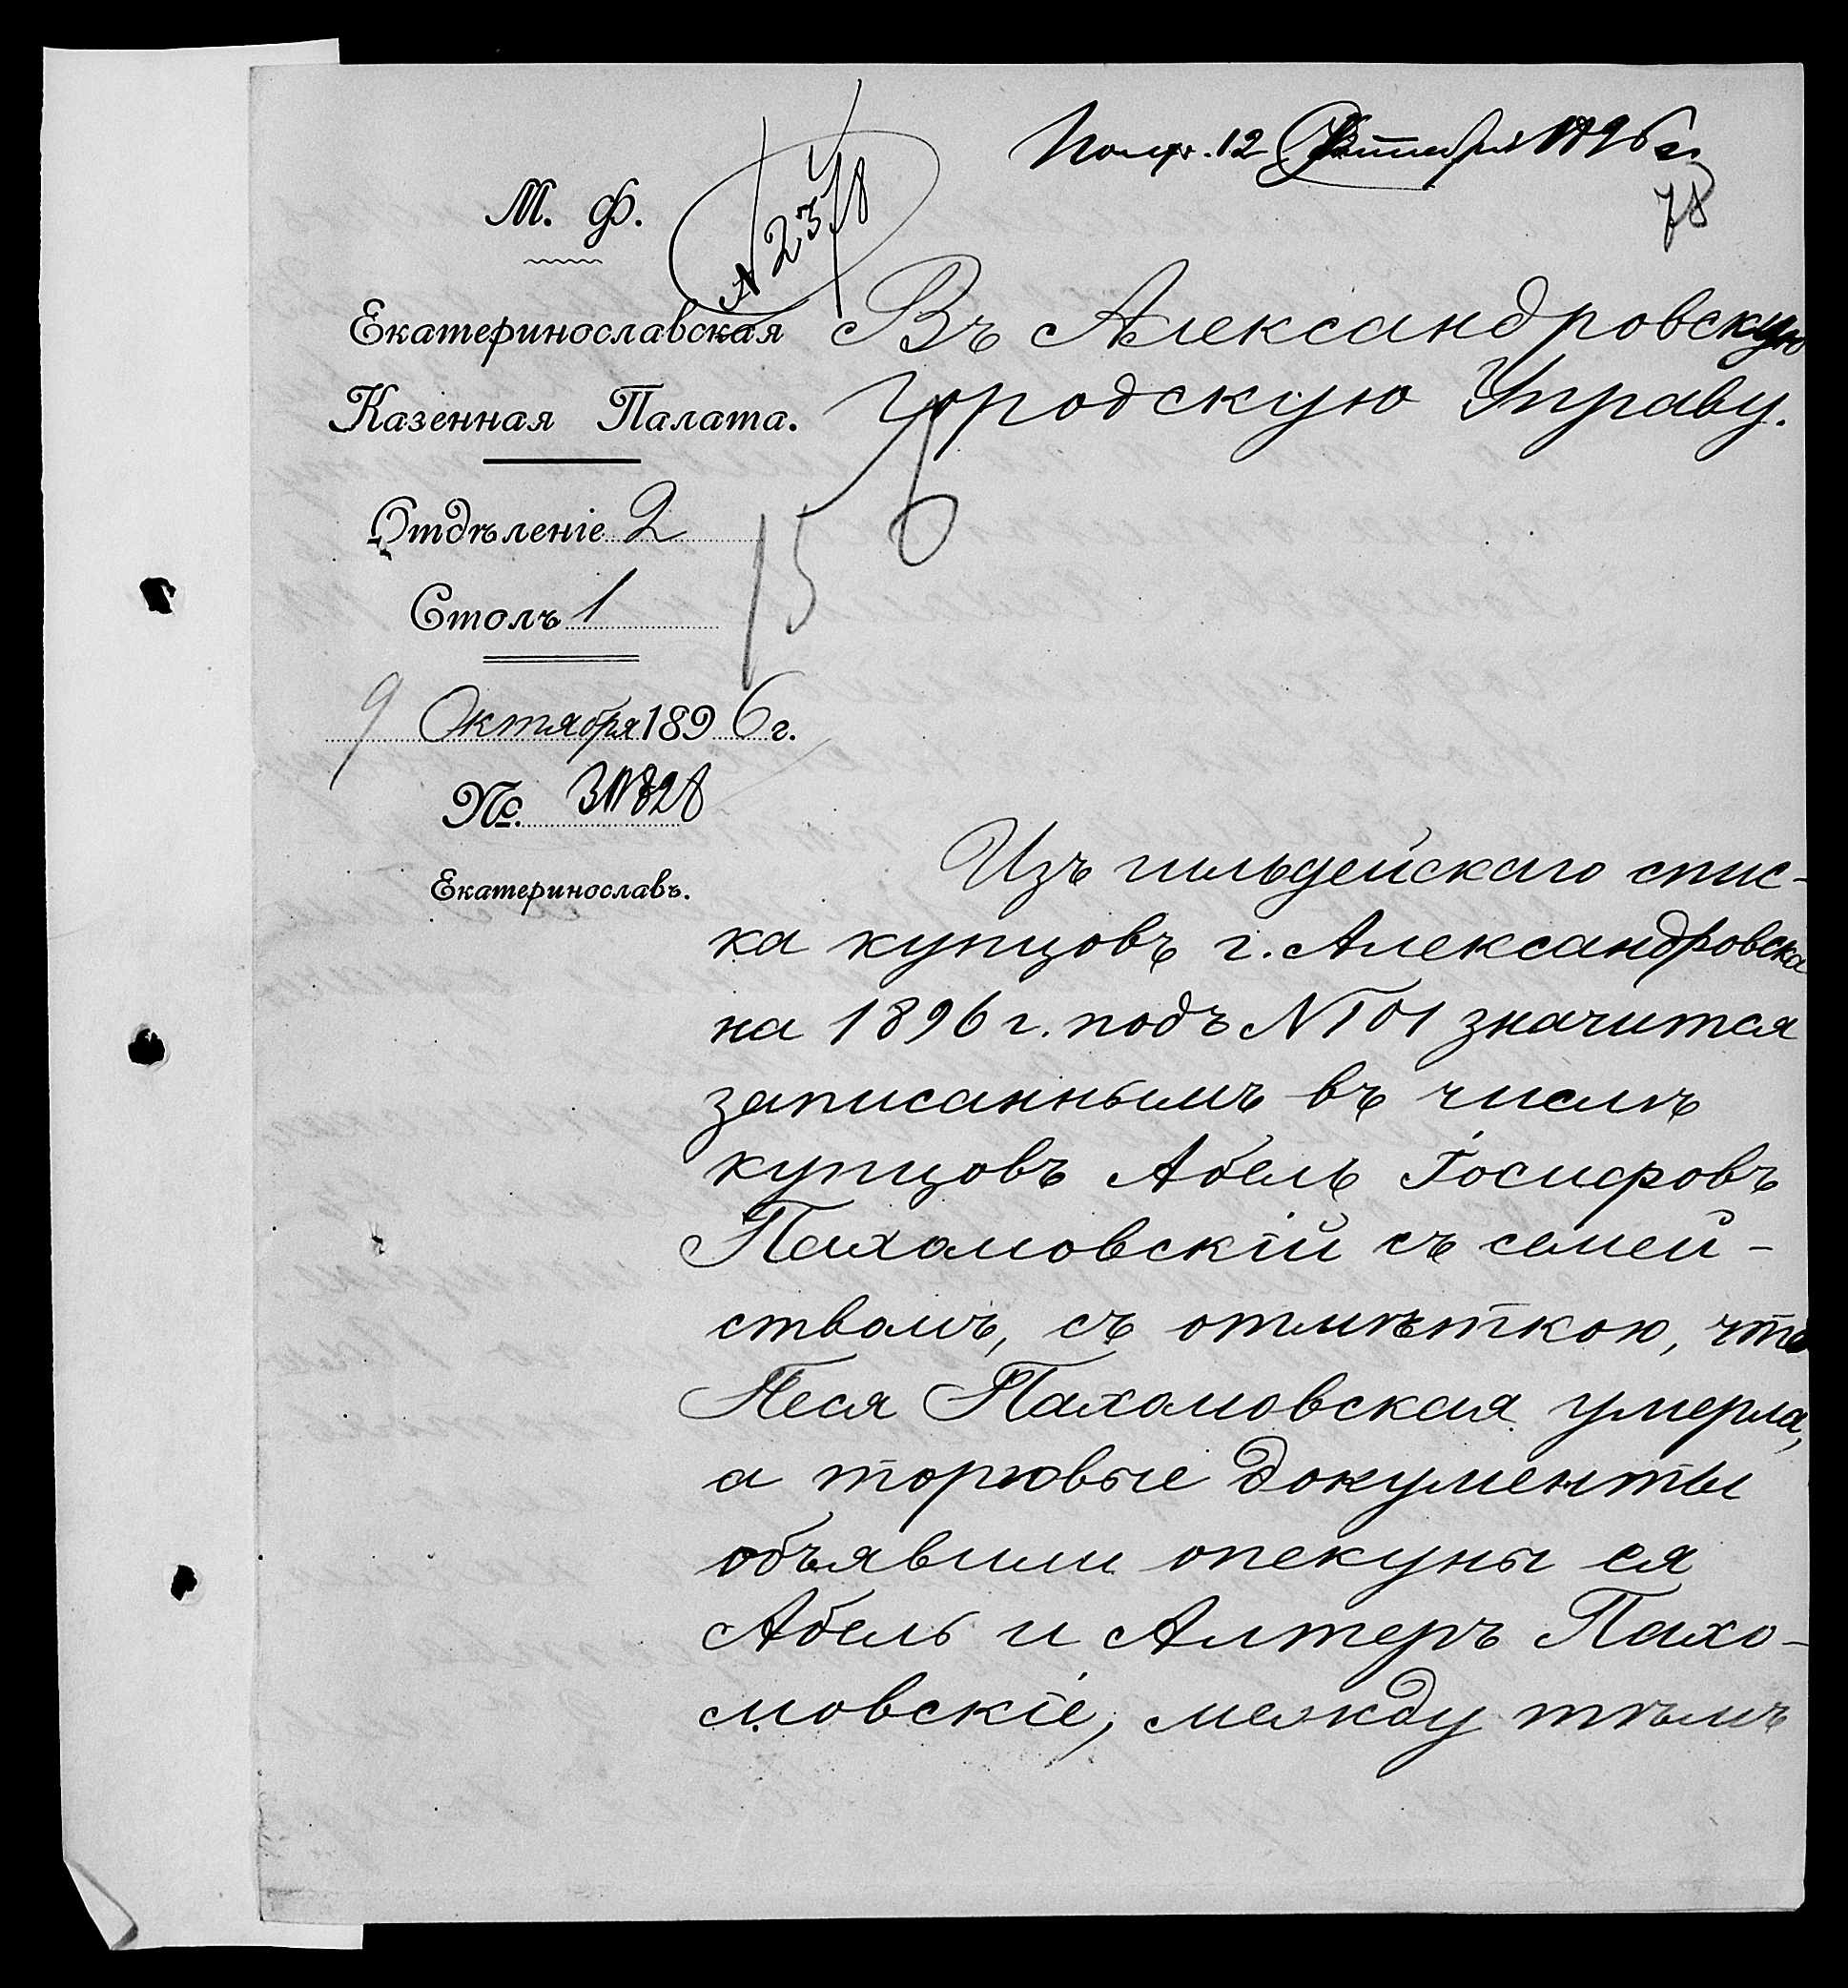 Получ. 12 Октября 1896 г.
78
М. Ф.
Екатеринославская
Казенная Палата.
Отдѣленіе 2
Столъ 1
9 Октября 1896 г.
№.
Екатеринославъ.
Въ Александровскую
Городскую Управу.
15
Изъ гильдейскаго спис-
ка купцовъ г. Александровска
на 1896 г. подъ № 101 значится
записаннымъ въ числѣ
купцовъ Абель Іосифовъ
Пахомовскій съ семей-
ствомъ, съ отмѣткою, что
Песя Пахомовская умерла,
а торговые документы
объявили опекуны ея
Абель и Алтеръ Пахо-
мовскіе, между тѣмъ